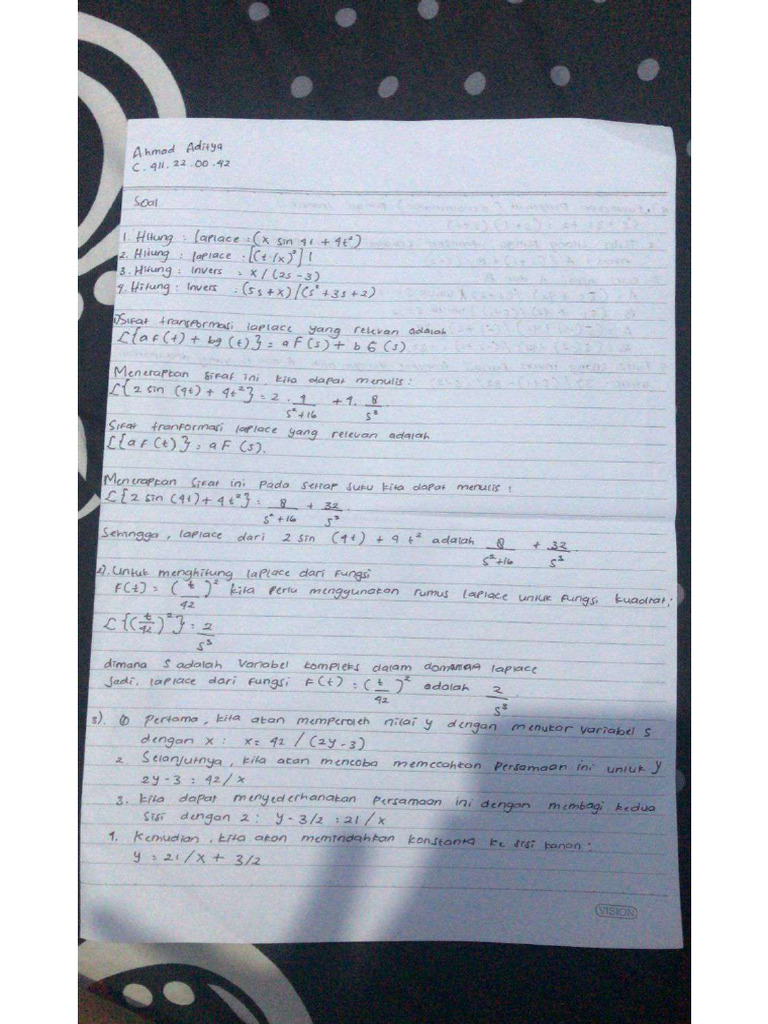 Ahmad Aditya
C. 411. 22. 00. 42
Soal
1. Hitung : laplace : (x sin 4t + 4t²)
2. Hitung : laplace : [(t/x)²] !
3. Hitung : Invers = x / (2s - 3)
4. Hitung : Invers = (5s + x) / (s² + 3s + 2)
1) Sifat transformasi laplace yang relevan adalah
L{aF(t) + bg(t)} = aF(s) + b G(s)
Menerapkan sifat ini kita dapat menulis :
L{2 sin (4t) + 4t²} = 2 . 4/(s²+16) + 4 . 8/s³
Sifat tranformasi laplace yang relevan adalah
L{aF(t)} = aF(s).
Menerapkan sifat ini pada setiap suku kita dapat menulis :
L{2 sin (4t) + 4t²} = 8/(s²+16) + 32/s³
Sehingga, laplace dari 2 sin (4t) + 4t² adalah 8/(s²+16) + 32/s³
2). Untuk menghitung laplace dari fungsi
F(t) = (t/42)² kita perlu menggunakan rumus laplace untuk fungsi kuadrat;
L{(t/42)²} = 2/s³
dimana s adalah variabel kompleks dalam domain laplace
Jadi, laplace dari fungsi F(t) = (t/42)² adalah 2/s³
3). ① Pertama, kita akan memperoleh nilai y dengan menukar variabel s
dengan x : x = 42 / (2y - 3)
2. Selanjutnya, kita akan mencoba memecahkan persamaan ini untuk y
2y - 3 = 42/x
3. Kita dapat menyederhanakan persamaan ini dengan membagi kedua
sisi dengan 2 : y - 3/2 = 21/x
4. Kemudian, kita akan memindahkan konstanta ke sisi kanan :
y = 21/x + 3/2
VISION